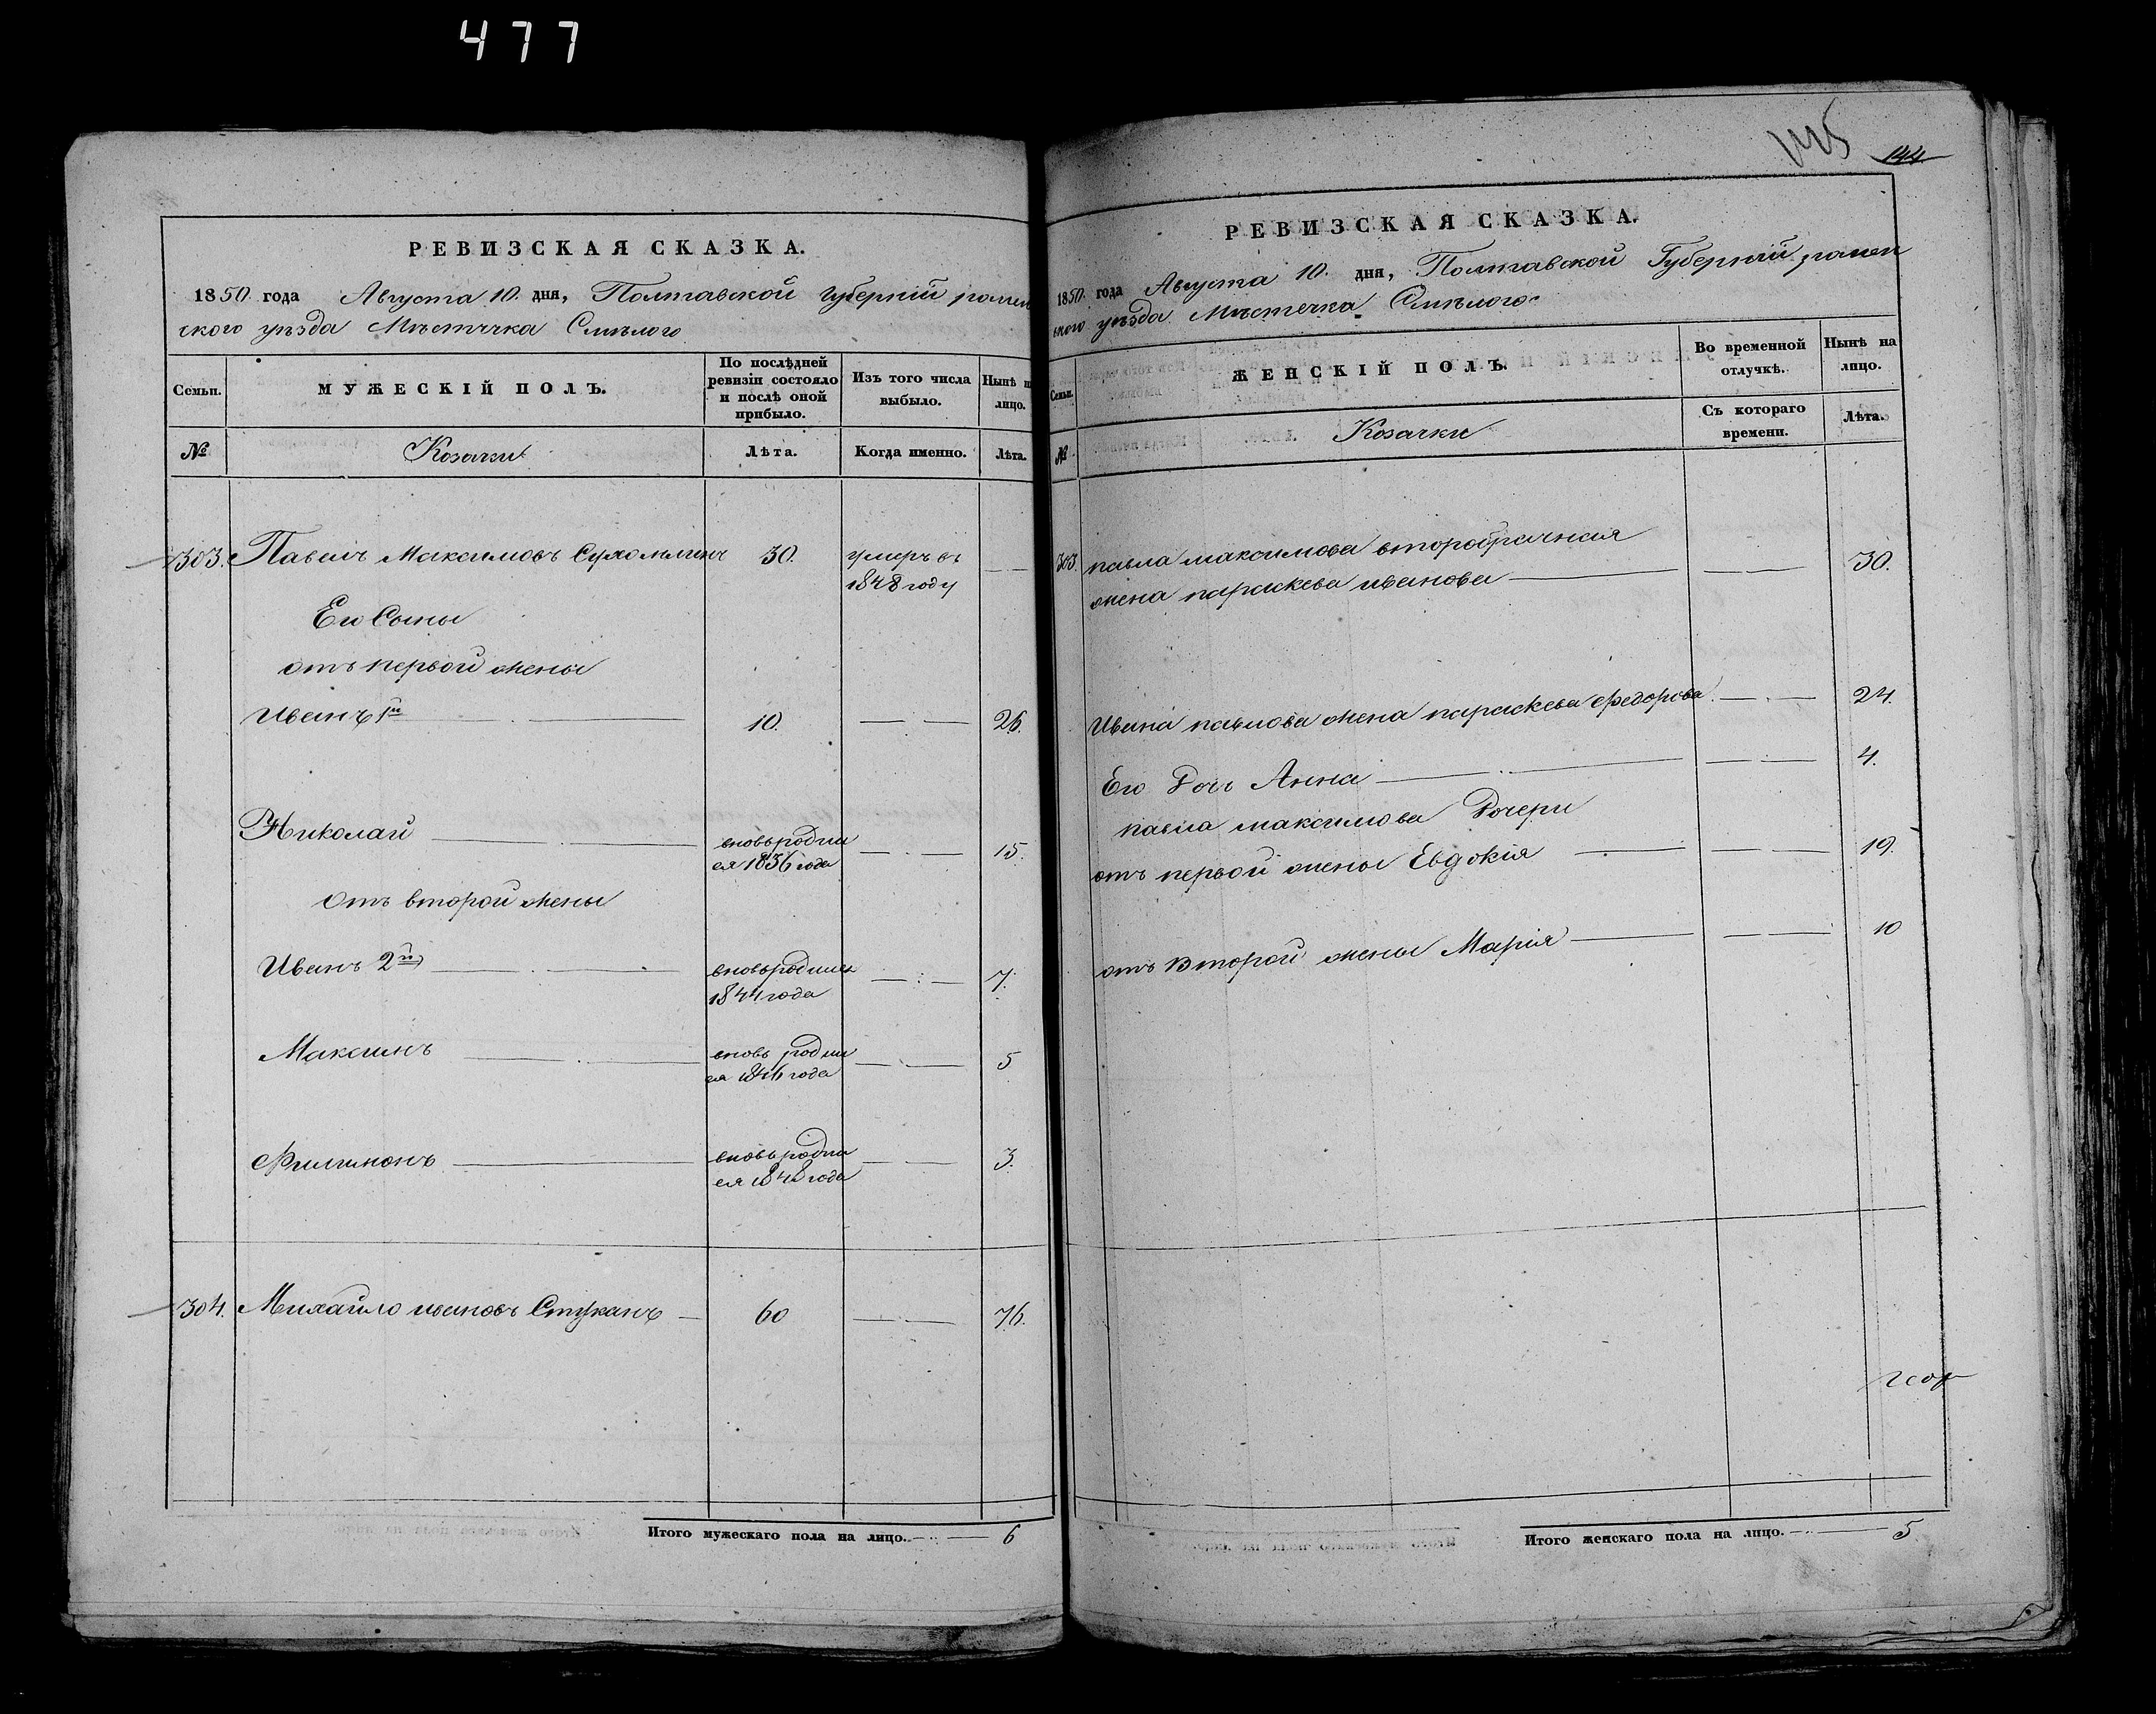 477
РЕВИЗСКАЯ СКАЗКА.
1850. года Августа 10. дня, Полтавской Губерніи ромен
ского уѣзда Мѣстечка Смѣлого
Семьи.
МУЖЕСКІЙ ПОЛЪ.
По послѣдней
ревизіи состояло
и послѣ оной
прибыло.
Изъ того числа
выбыло.
Нынѣ н
лицо.
№
Козачки
Лѣта.
Когда именно.
Лѣта.
303. Павелъ Максимовъ 30. умеръ въ
1848 году
Его Сыны
отъ первой жены
Иванъ 1й 10. 26.
Николай вновь родил
ся 1836 года 15.
Отъ второй жены
Иванъ 2й вновь родился
1844 года 7.
Максимъ вновь родил
ся 1846 года 5
Филимонъ вновь родил
ся 1848 года 3.
304. Михайло ивановъ Стуканъ 60 76.
Итого мужескаго пола на лицо. 6
145 144
РЕВИЗСКАЯ СКАЗКА.
1850. года Августа 10. дня, Полтавской Губерній ромен
ского уѣзда Мѣстечка Смѣлого
Семьи.
ЖЕНСКІЙ ПОЛЪ.
Во временной
отлучкѣ.
Нынѣ на
лицо.
№
Козачки
Съ котораго
времени.
Лѣта.
303. павла максимова второбрачная
жена параскева иванова 30.
Ивана павлова жена параскева федорова 24.
Его Дочь Анна 4.
павла максимова Дочери
отъ первой жены Евдокія 19.
отъ Второй жены Марія 10
Итого женскаго пола на лицо. 5